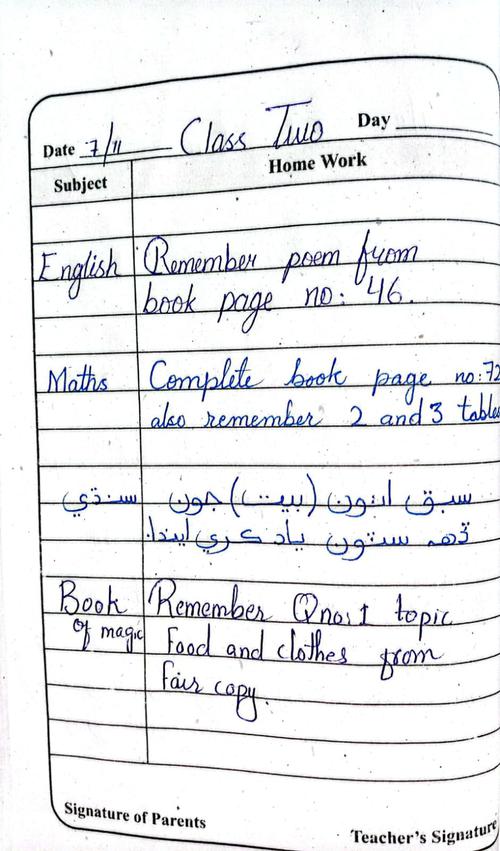 Date 7/11 Class Two Day
Subject Home Work
English Remember poem from
book page no: 46.
Maths Complete book page no:72
also remember 2 and 3 tables
سنڌي سبق اٺون (بيت) جون
ڏهه سٽون ياد ڪري ايندا.
Book Remember Qno:1 topic
of magic Food and clothes from
fair copy.
Signature of Parents Teacher's Signature